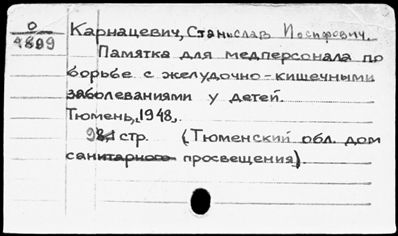 0
4899
Карнацевич, Станислав Иосифович.
Памятка для медперсонала по
борьбе с желудочно-кишечными
заболеваниями у детей.
Тюмень, 1948,
стр. (Тюменский обл. дом
санитарного просвещения).